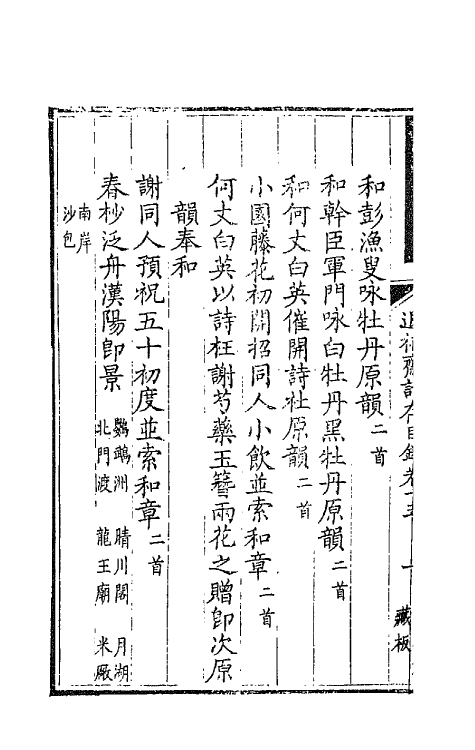 和彭漁叟咏牡丹原韻二首
和幹臣軍門咏白牡丹黑牡丹原韻二首
和何丈白英催開詩社原韻二首
小園藤花初開招同人小飲並索和章二首
何丈白英以詩枉謝芍藥玉簪兩花之贈卽次原
韻奉和
謝同人預祝五十初度並索和章二首
春杪泛舟漢陽卽景 鸚鵡洲 晴川閣 月湖
北門渡 龍王廟 米厰
南岸
沙包
藏板